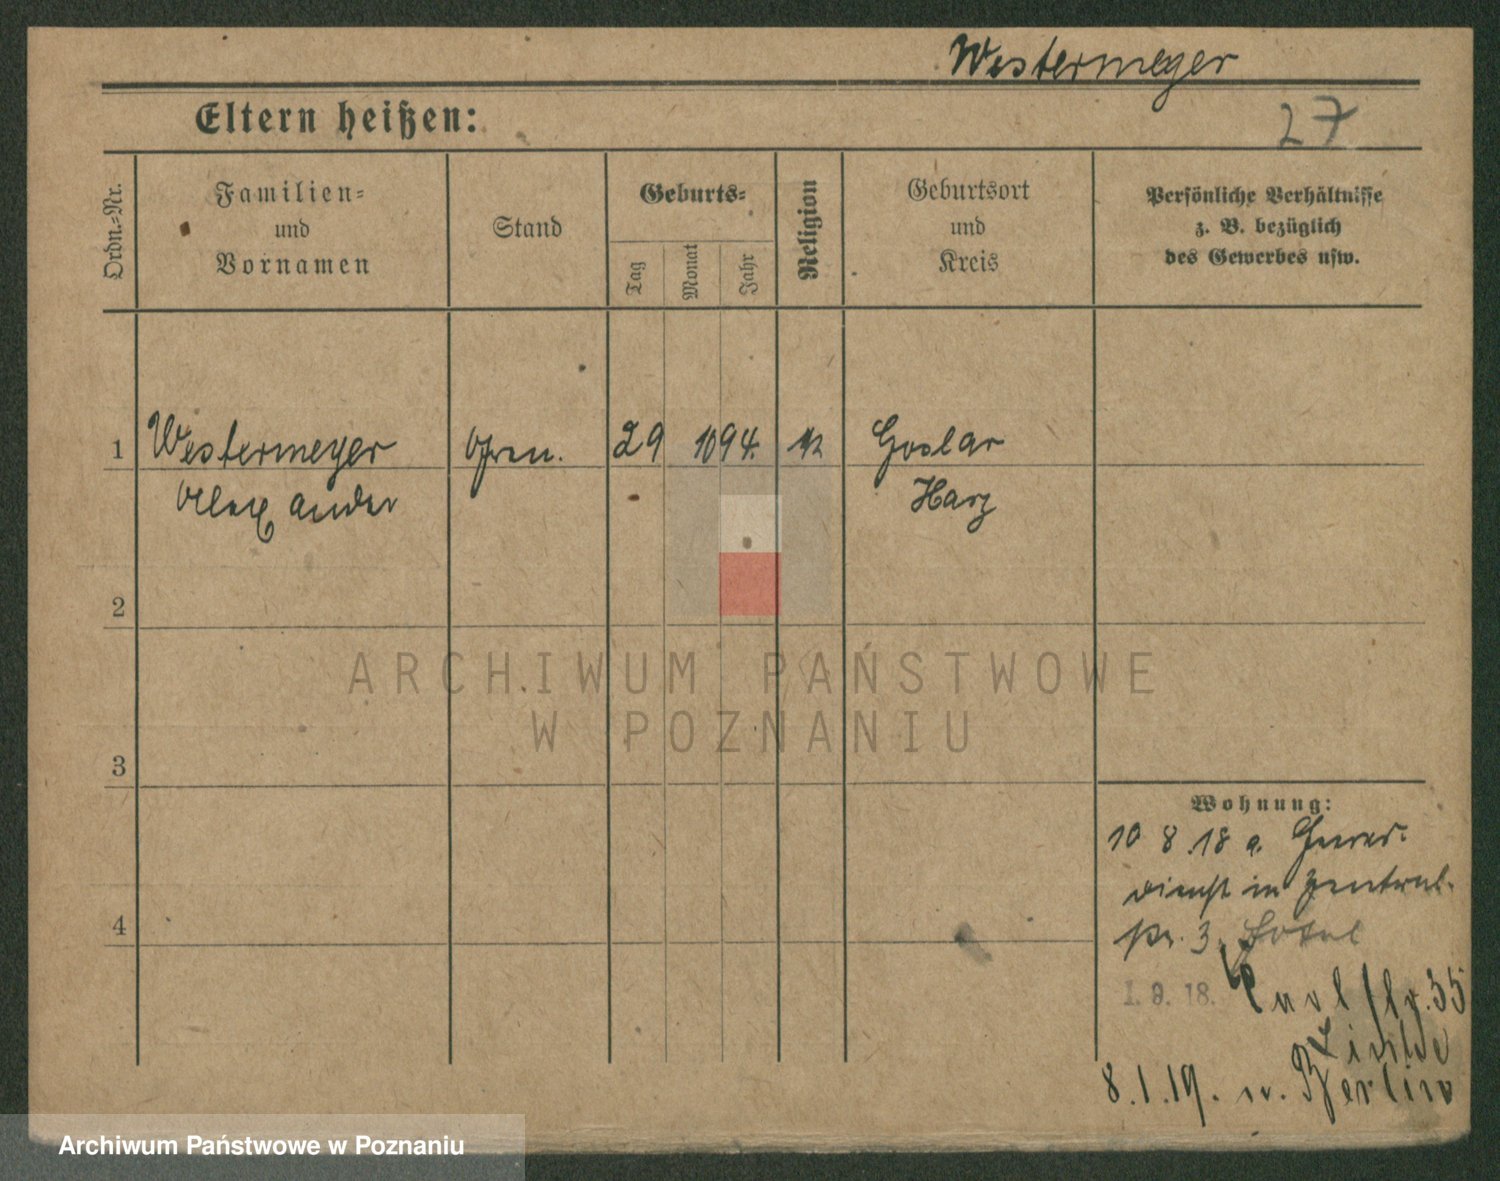 Westermeyer
27
Eltern heißen:
Ordn.-Nr.
Familien-
und
Vornamen
Stand
Geburts-
Tag
Monat
Jahr
Religion
Geburtsort
und
Kreis
Persönliche Verhältnisse
z. B. bezüglich
des Gewerbes usw.
1 Westermeyer 29 10 94. Goslar
Alexander Harz
2
3
4
ARCHIWUM PAŃSTWOWE
W POZNANIU
Wohnung:
10 8.18 a.
dienst in Zentral-
3. Hotel
1. 9. 18. Carlstr. 35
Linke
8.1.19. n. Berlin
Archiwum Państwowe w Poznaniu